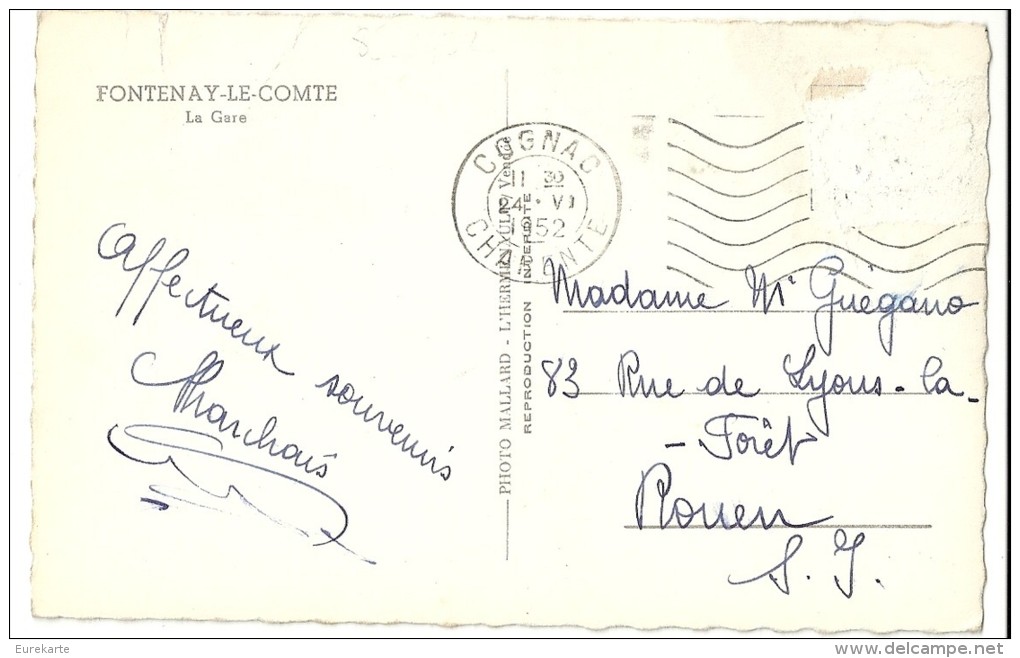 FONTENAY-LE-COMTE
La Gare
COGNAC
11 30
24 · VI
1952
CHARENTE
PHOTO MALLARD - L'HERMENAULT / Vendée
REPRODUCTION INTERDITE
Affectueux souvenirs
Marchais
Madame Mⁱᵉ Guegano
83 Rue de Lyons-la-
-Forêt
Rouen
S. I.
Eurekarte
delcampe.net